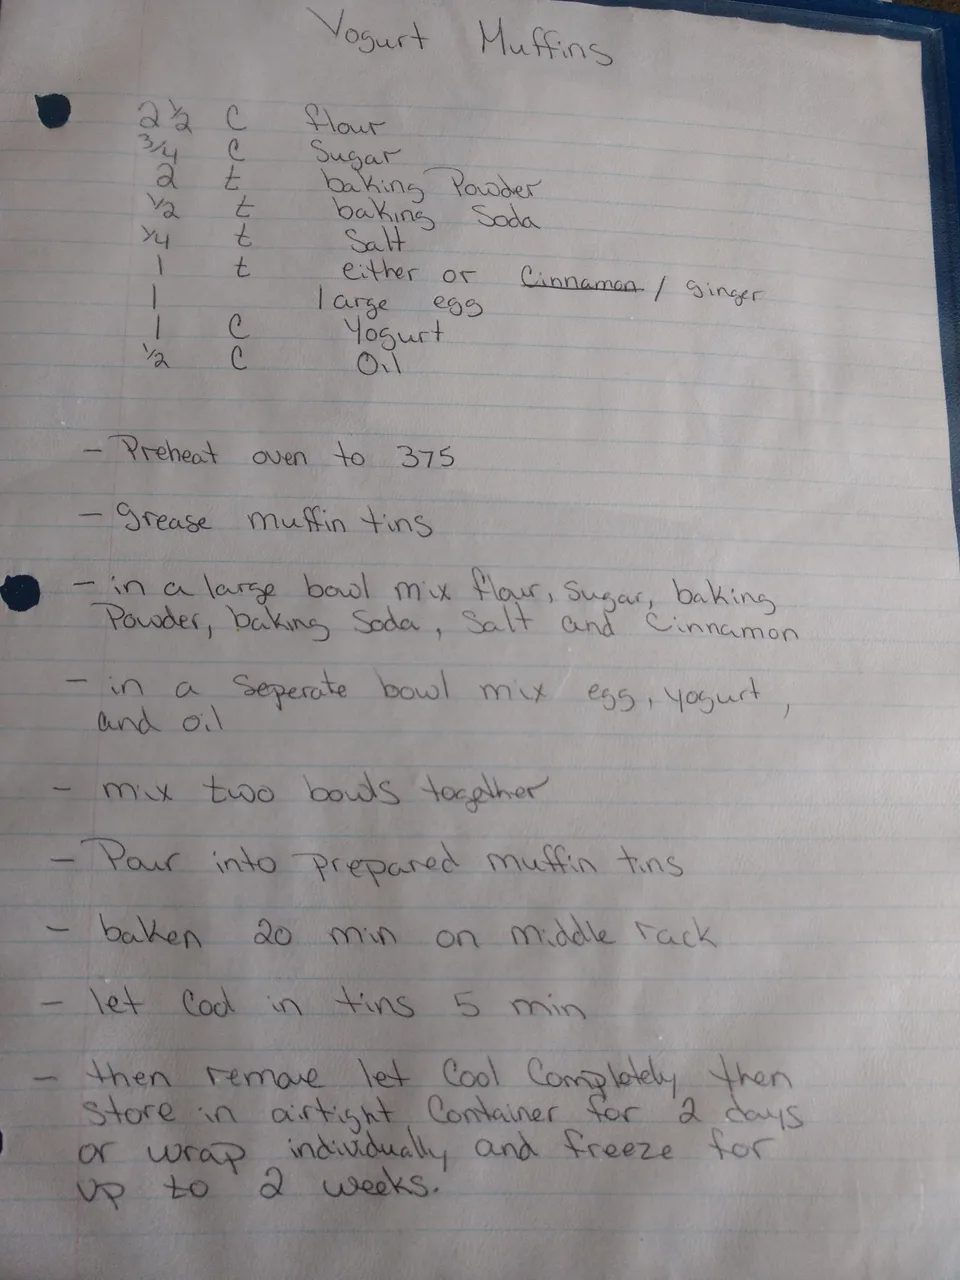 Yogurt Muffins
2 1/2 C flour
3/4 C Sugar
2 t baking Powder
1/2 t baking Soda
1/4 t Salt
1 t either or Cinnamon / ginger
1 large egg
1 C Yogurt
1/2 C Oil
- Preheat oven to 375
- grease muffin tins
- in a large bowl mix flour, Sugar, baking
Powder, baking Soda, Salt and Cinnamon
- in a Seperate bowl mix egg, yogurt,
and oil
- mix two bowls together
- Pour into prepared muffin tins
- baken 20 min on middle rack
- let Cool in tins 5 min
- then remove let Cool Completely then
store in airtight Container for 2 days
or wrap individually and freeze for
up to 2 weeks.